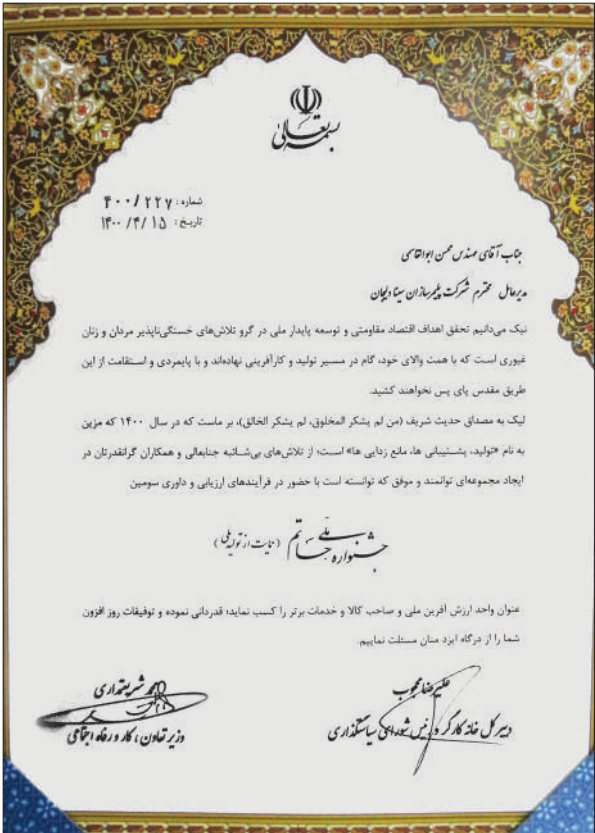 بسمه تعالی
شماره: ۴۰۰/۲۲۷
تاریخ: ۱۴۰۰/۴/۱۵
جناب آقای مهندس محسن ابوالقاسمی
مدیرعامل محترم شرکت پلیمرسازان سینا دلیجان
نیک می‌دانیم تحقق اهداف اقتصاد مقاومتی و توسعه پایدار ملی در گرو تلاش‌های خستگی‌ناپذیر مردان و زنان
غیوری است که با همت والای خود، گام در مسیر تولید و کارآفرینی نهاده‌اند و با پایمردی و استقامت از این
طریق مقدس پای پس نخواهند کشید.
لیک به مصداق حدیث شریف (من لم یشکر المخلوق، لم یشکر الخالق)، بر ماست که در سال ۱۴۰۰ که مزین
به نام «تولید، پشتیبانی ها، مانع زدایی ها» است؛ از تلاش‌های بی‌شائبه جنابعالی و همکاران گرانقدرتان در
ایجاد مجموعه‌ای توانمند و موفق که توانسته است با حضور در فرآیندهای ارزیابی و داوری سومین
جشنواره ملی حاتم (حمایت از تولید ملی)
عنوان واحد ارزش آفرین ملی و صاحب کالا و خدمات برتر را کسب نماید؛ قدردانی نموده و توفیقات روز افزون
شما را از درگاه ایزد منان مسئلت نماییم.
علیرضا محجوب
دبیرکل خانه کارگر و رئیس شورای سیاستگذاری
محمد شریعتمداری
وزیر تعاون، کار و رفاه اجتماعی